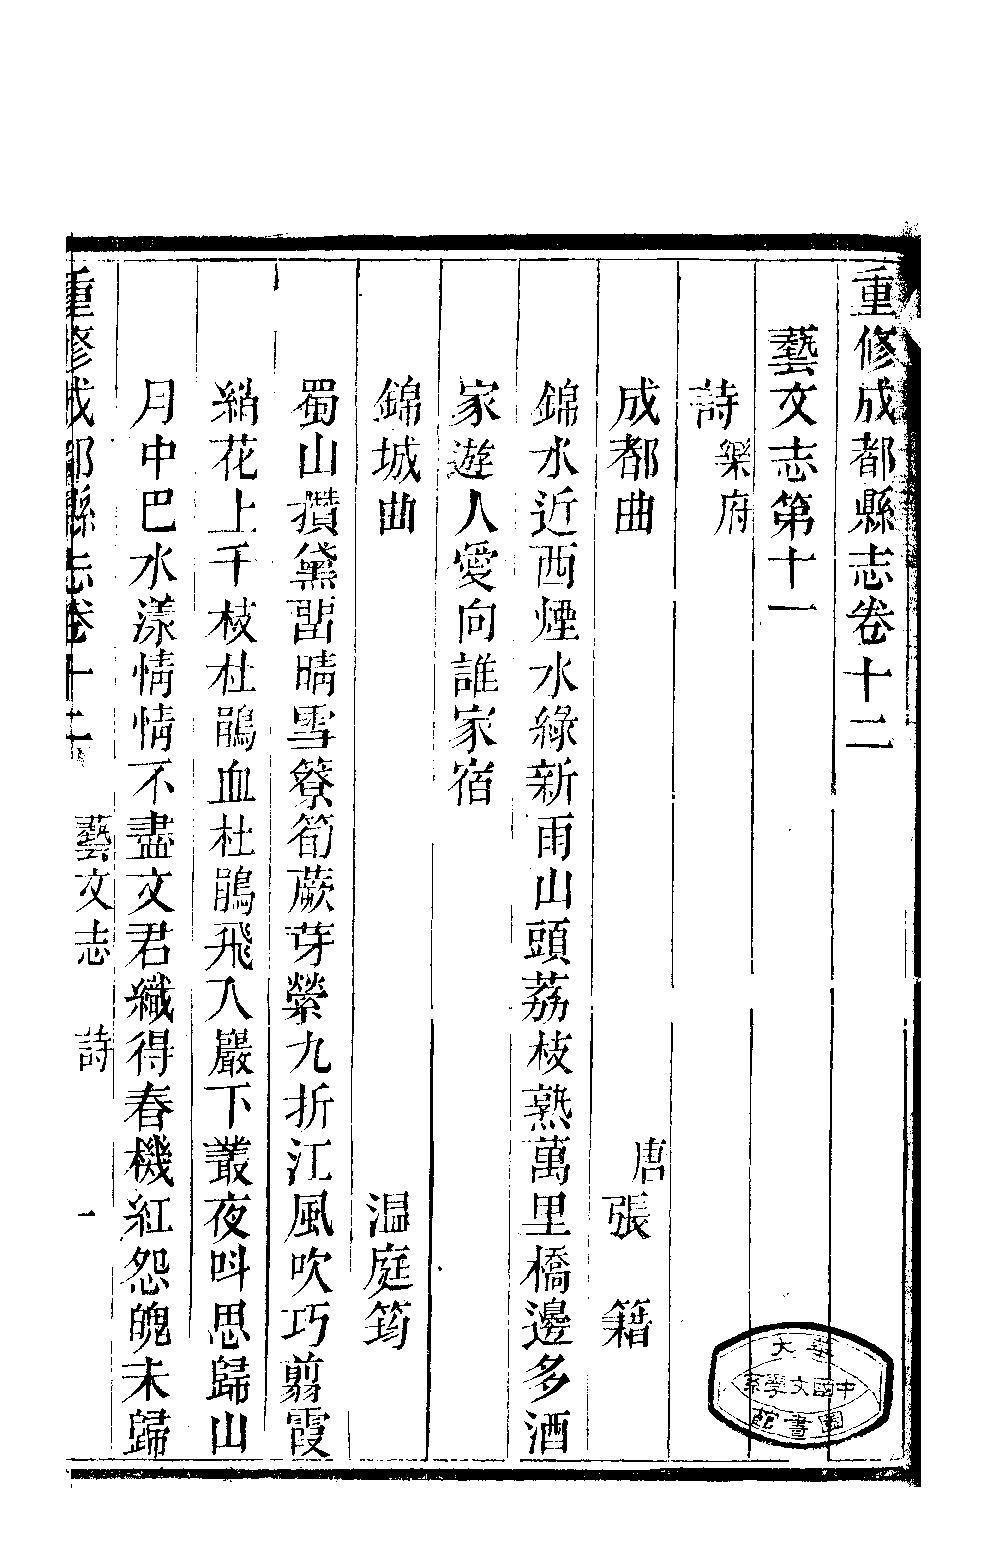 重修成都縣志卷十二
藝文志第十一
詩 樂府
成都曲 唐張 籍
錦水近西煙水綠新雨山頭荔枝熟萬里橋邊多酒
家遊人愛向誰家宿
錦城曲 温庭筠
蜀山攢黛留晴雪簝筍蕨芽縈九折江風吹巧翦霞
綃花上千枝杜鵑血杜鵑飛入巖下叢夜呌思歸山
月中巴水漾情情不盡文君織得春機紅怨魄未歸
重修成都縣志卷十二 藝文志 詩 一
華大
中國文學系
圖書館